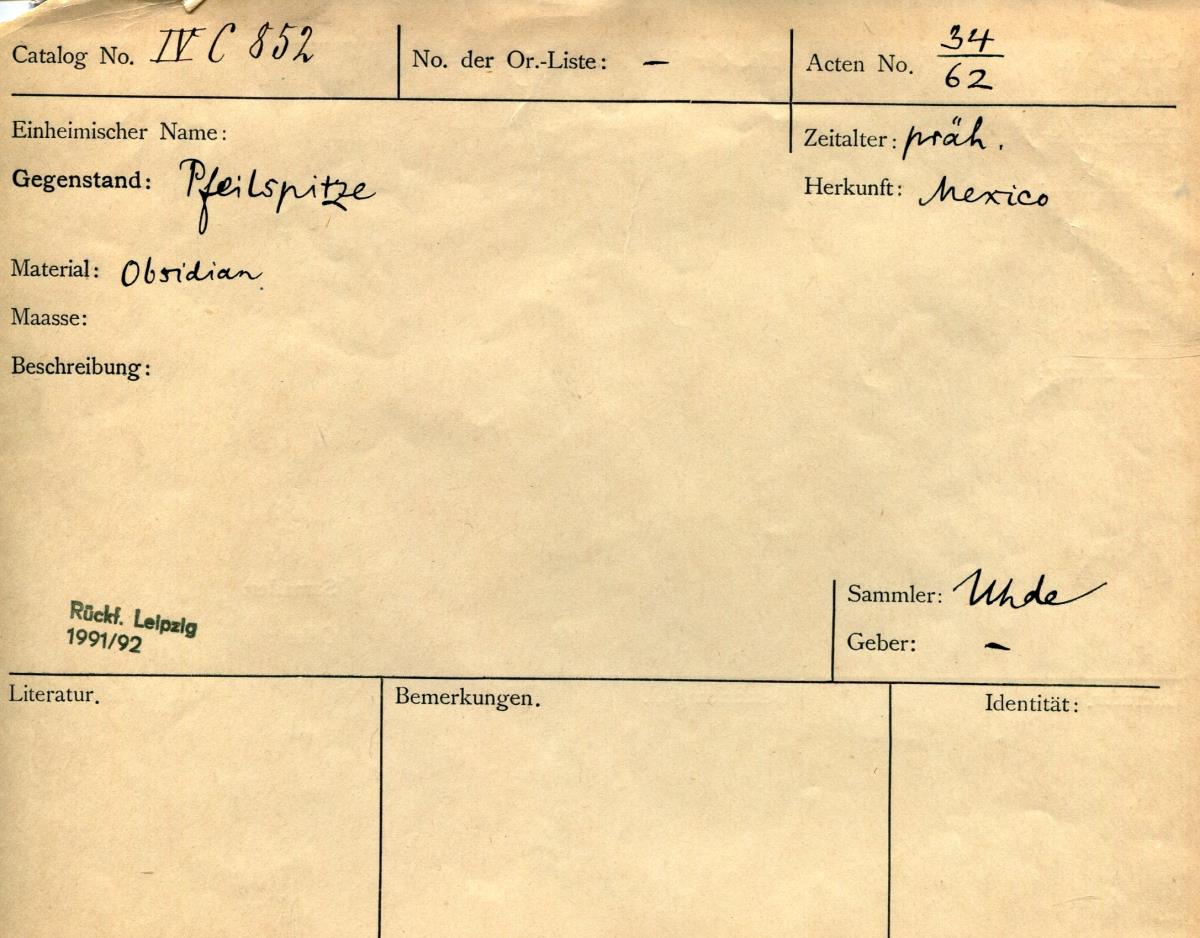 Catalog No. IV C 852
No. der Or.-Liste: —
Acten No. 34/62
Einheimischer Name:
Zeitalter: präh.
Gegenstand: Pfeilspitze
Herkunft: Mexico
Material: Obsidian
Maasse:
Beschreibung:
Sammler: Uhde
Rückf. Leipzig
1991/92
Geber: —
Literatur.
Bemerkungen.
Identität: